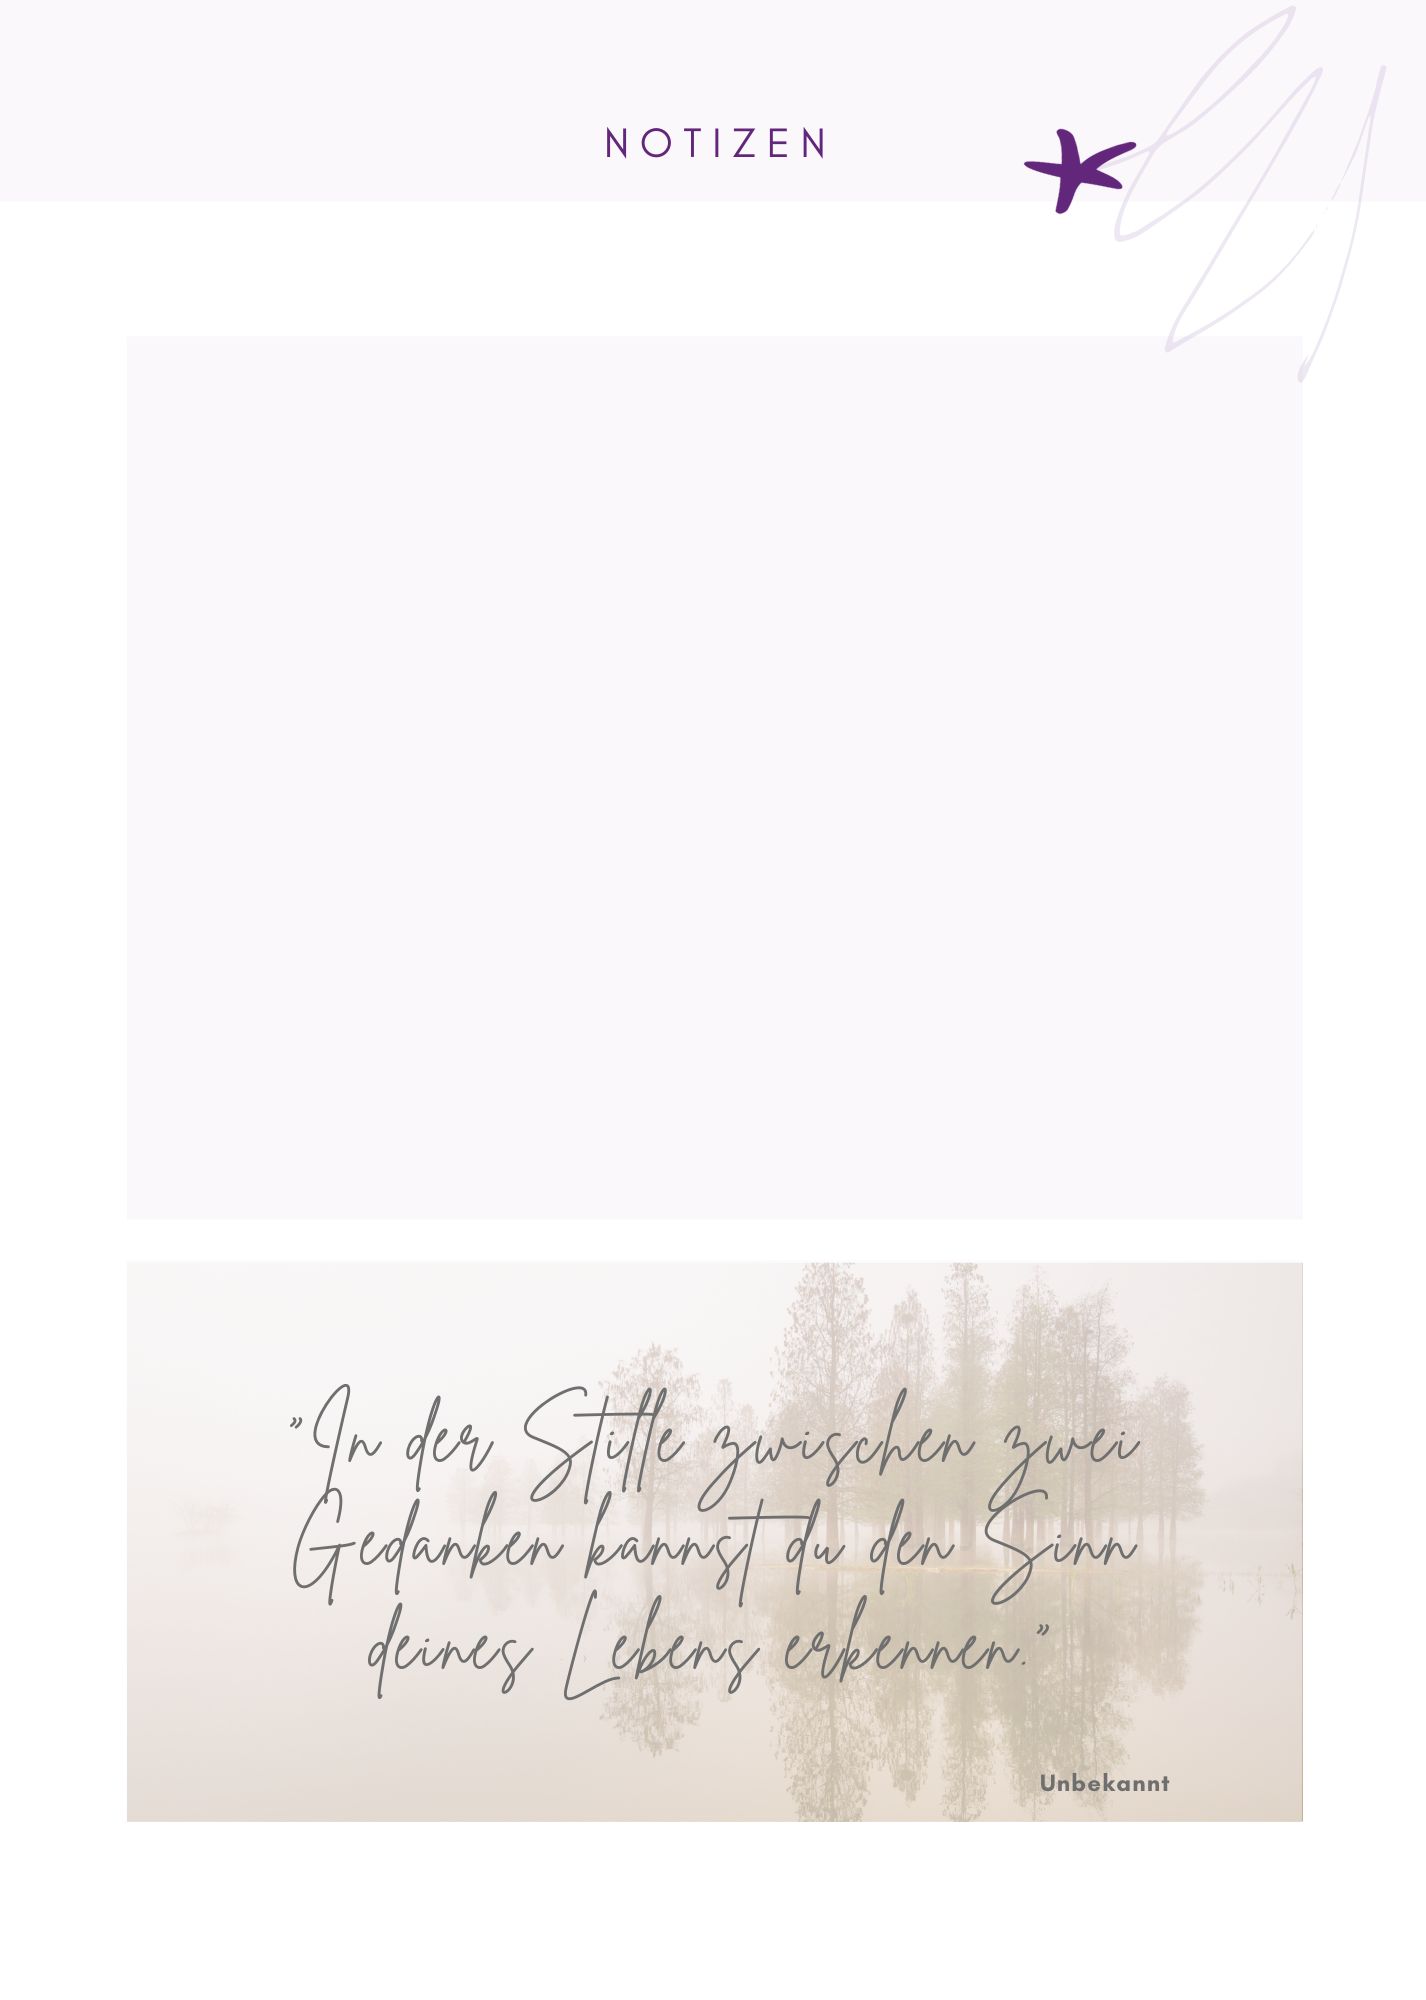 NOTIZEN
"In der Stille zwischen zwei
Gedanken kannst du den Sinn
deines Lebens erkennen."
Unbekannt